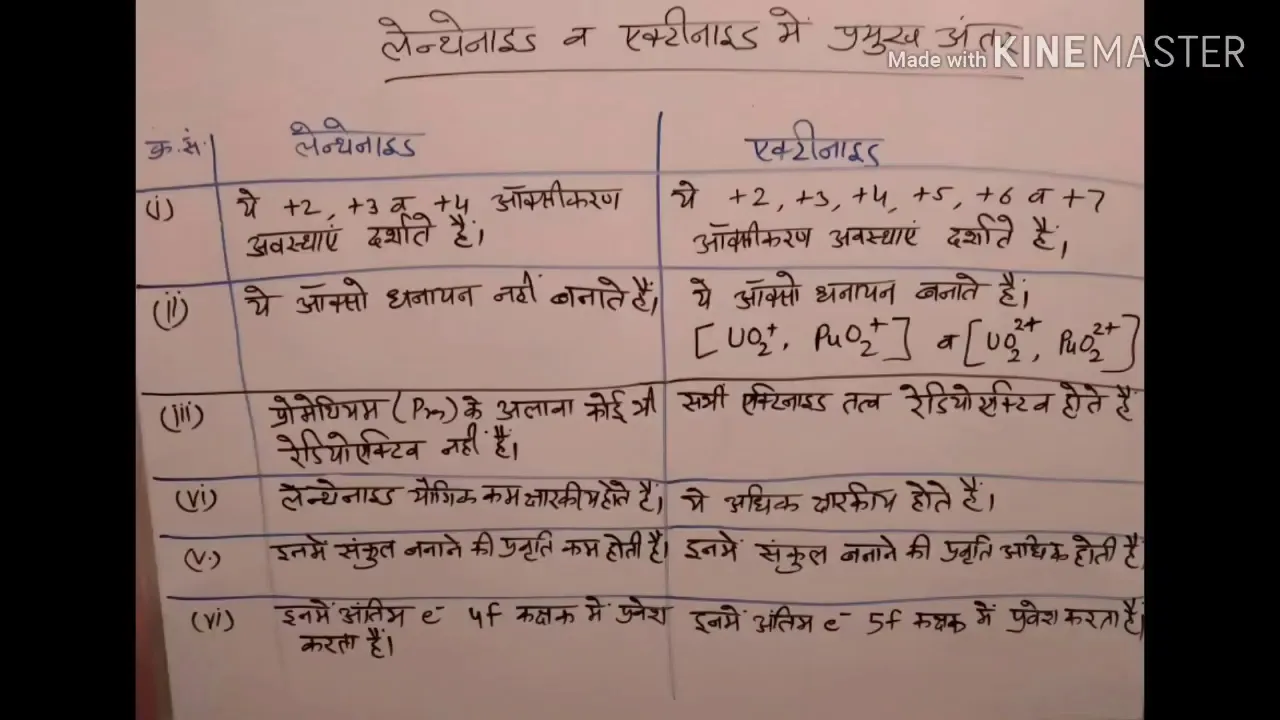 लेन्थेनाइड व एक्टीनाइड में प्रमुख अंतर
Made with KINEMASTER
क्र.सं. लेन्थेनाइड एक्टीनाइड
(i) ये +2, +3 व +4 ऑक्सीकरण ये +2, +3, +4, +5, +6 व +7
अवस्थाएं दर्शाते है। ऑक्सीकरण अवस्थाएं दर्शाते है।
(ii) ये ऑक्सो धनायन नहीं बनाते है। ये ऑक्सो धनायन बनाते है।
[UO₂⁺, PuO₂⁺] व [UO₂²⁺, PuO₂²⁺]
(iii) प्रोमेथियम (Pm) के अलावा कोई भी सभी एक्टिनाइड तत्व रेडियोएक्टिव होते है
रेडियोएक्टिव नहीं है।
(vi) लेन्थेनाइड यौगिक कम क्षारकीय होते है। ये अधिक क्षारकीय होते है।
(v.) इनमें संकुल बनाने की प्रवृति कम होती है। इनमें संकुल बनाने की प्रवृति अधिक होती है
(vi) इनमें अंतिम e⁻ 4f कक्षक में प्रवेश इनमें अंतिम e⁻ 5f कक्षक में प्रवेश करता है।
करता है।